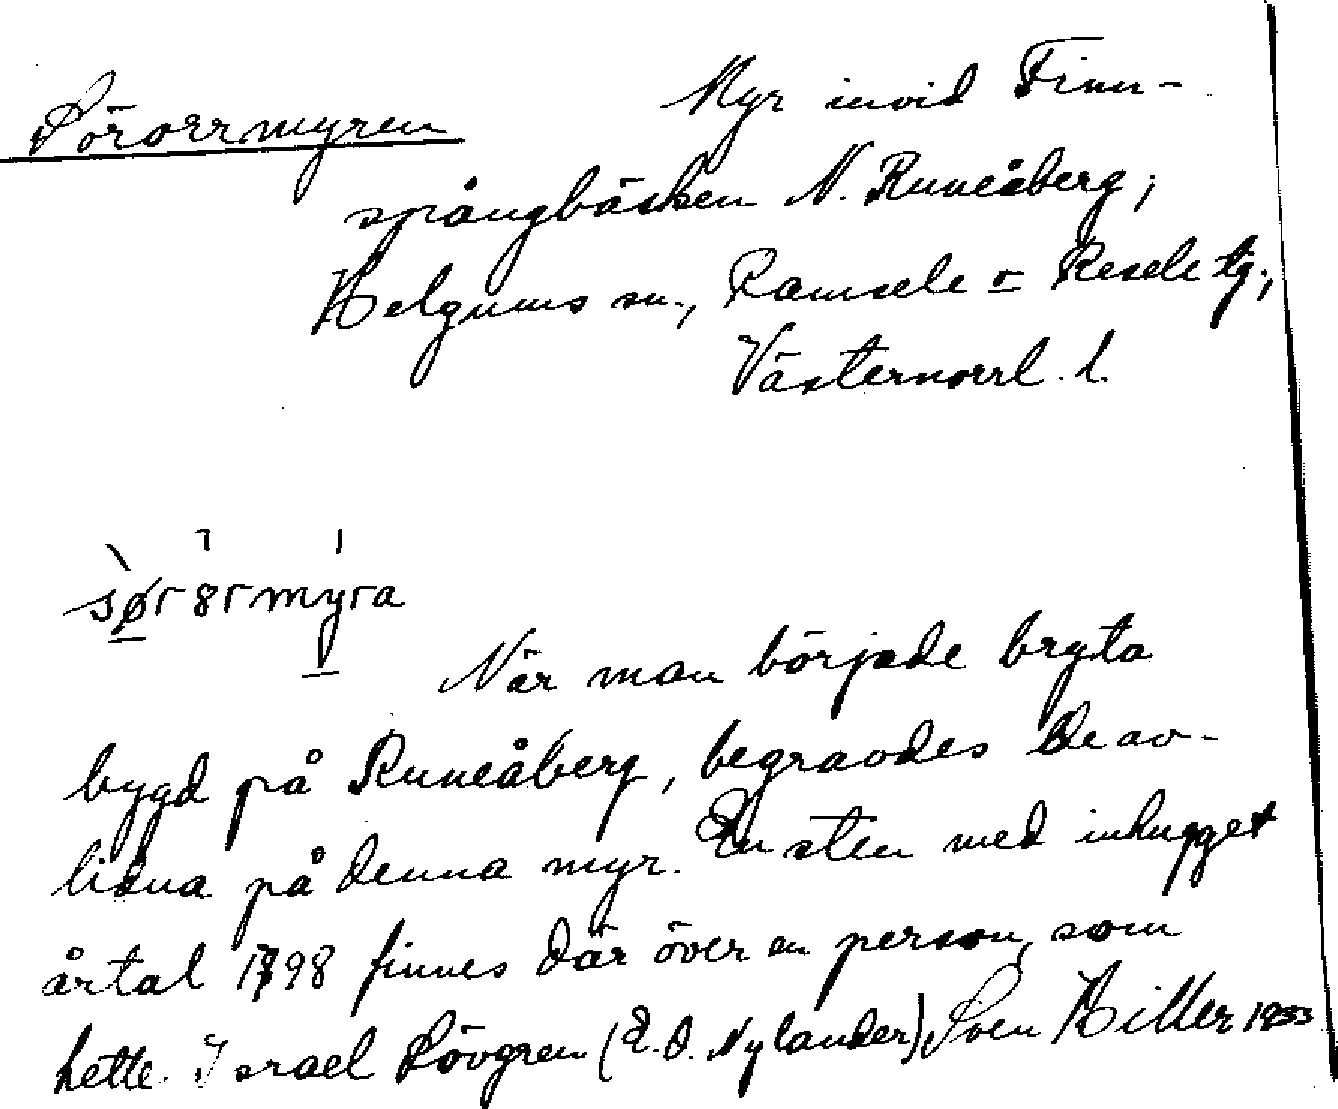 Sörorrmyren
Myr invid Finn-
spångbäcken N. Runeåberg,
Helgums sn., Ramsele o Resele tg.,
Västernorrl. l.
sør8rmyra
När man började bryta
bygd på Runeåberg, begravdes de av-
lidna på denna myr. En sten med inhugget
årtal 1798 finnes där över en person, som
hette Israel Lövgren (E.O. Nylander) Sven Hiller 1933